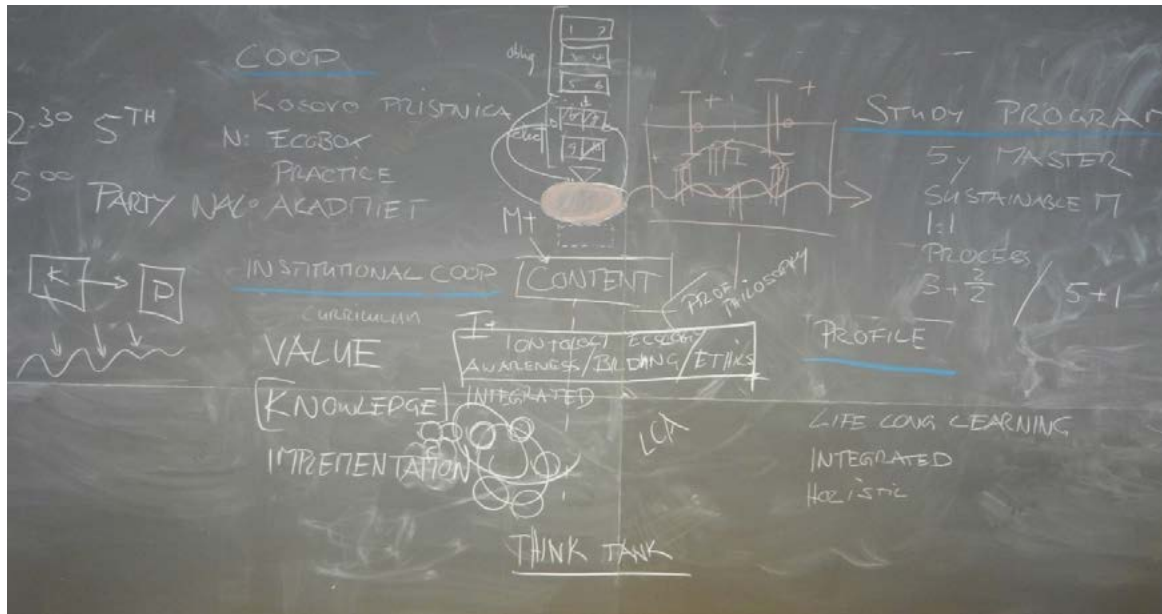 COOP
KOSOVO PRISTNICA
N: ECOBOX
PRACTICE
2.30 5TH
5.00 PARTY
AKADMIET
K
D
INSTITUTIONAL COOP
CURRICULUM
VALUE
KNOWLEDGE
IMPLEMENTATION
oblig
1 2
3 4
5 6
elect
M+
CONTENT
PHILOSOPHY
I+
ECOLOGY
AWARENESS/BILDUNG/ETHICS
INTEGRATED
LCA
THINK TANK
STUDY PROGRAM
5y MASTER
SUSTAINABLE M
1:1
PROCESS
3+2/2 / 5+1
PROFILE
LIFE LONG LEARNING
INTEGRATED
HOLISTIC